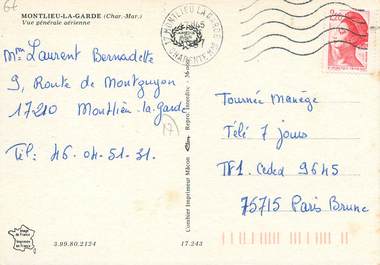 67
MONTLIEU-LA-GARDE (Char.-Mar.)
Vue générale aérienne
17 MONTLIEU LA GARDE
CHARENTE MME
2,20
Mme Laurent Bernadette
9, Route de Montguyon
17210 Montlieu-la-garde
17
Tél: 46.04.51.31.
Combier Imprimeur Mâcon
Tournée Manège
Télé 7 jours
TF1 Cedex 9645
75715 Paris Brune
Image de France
Imprimée en France
3.99.80.2124
17.243